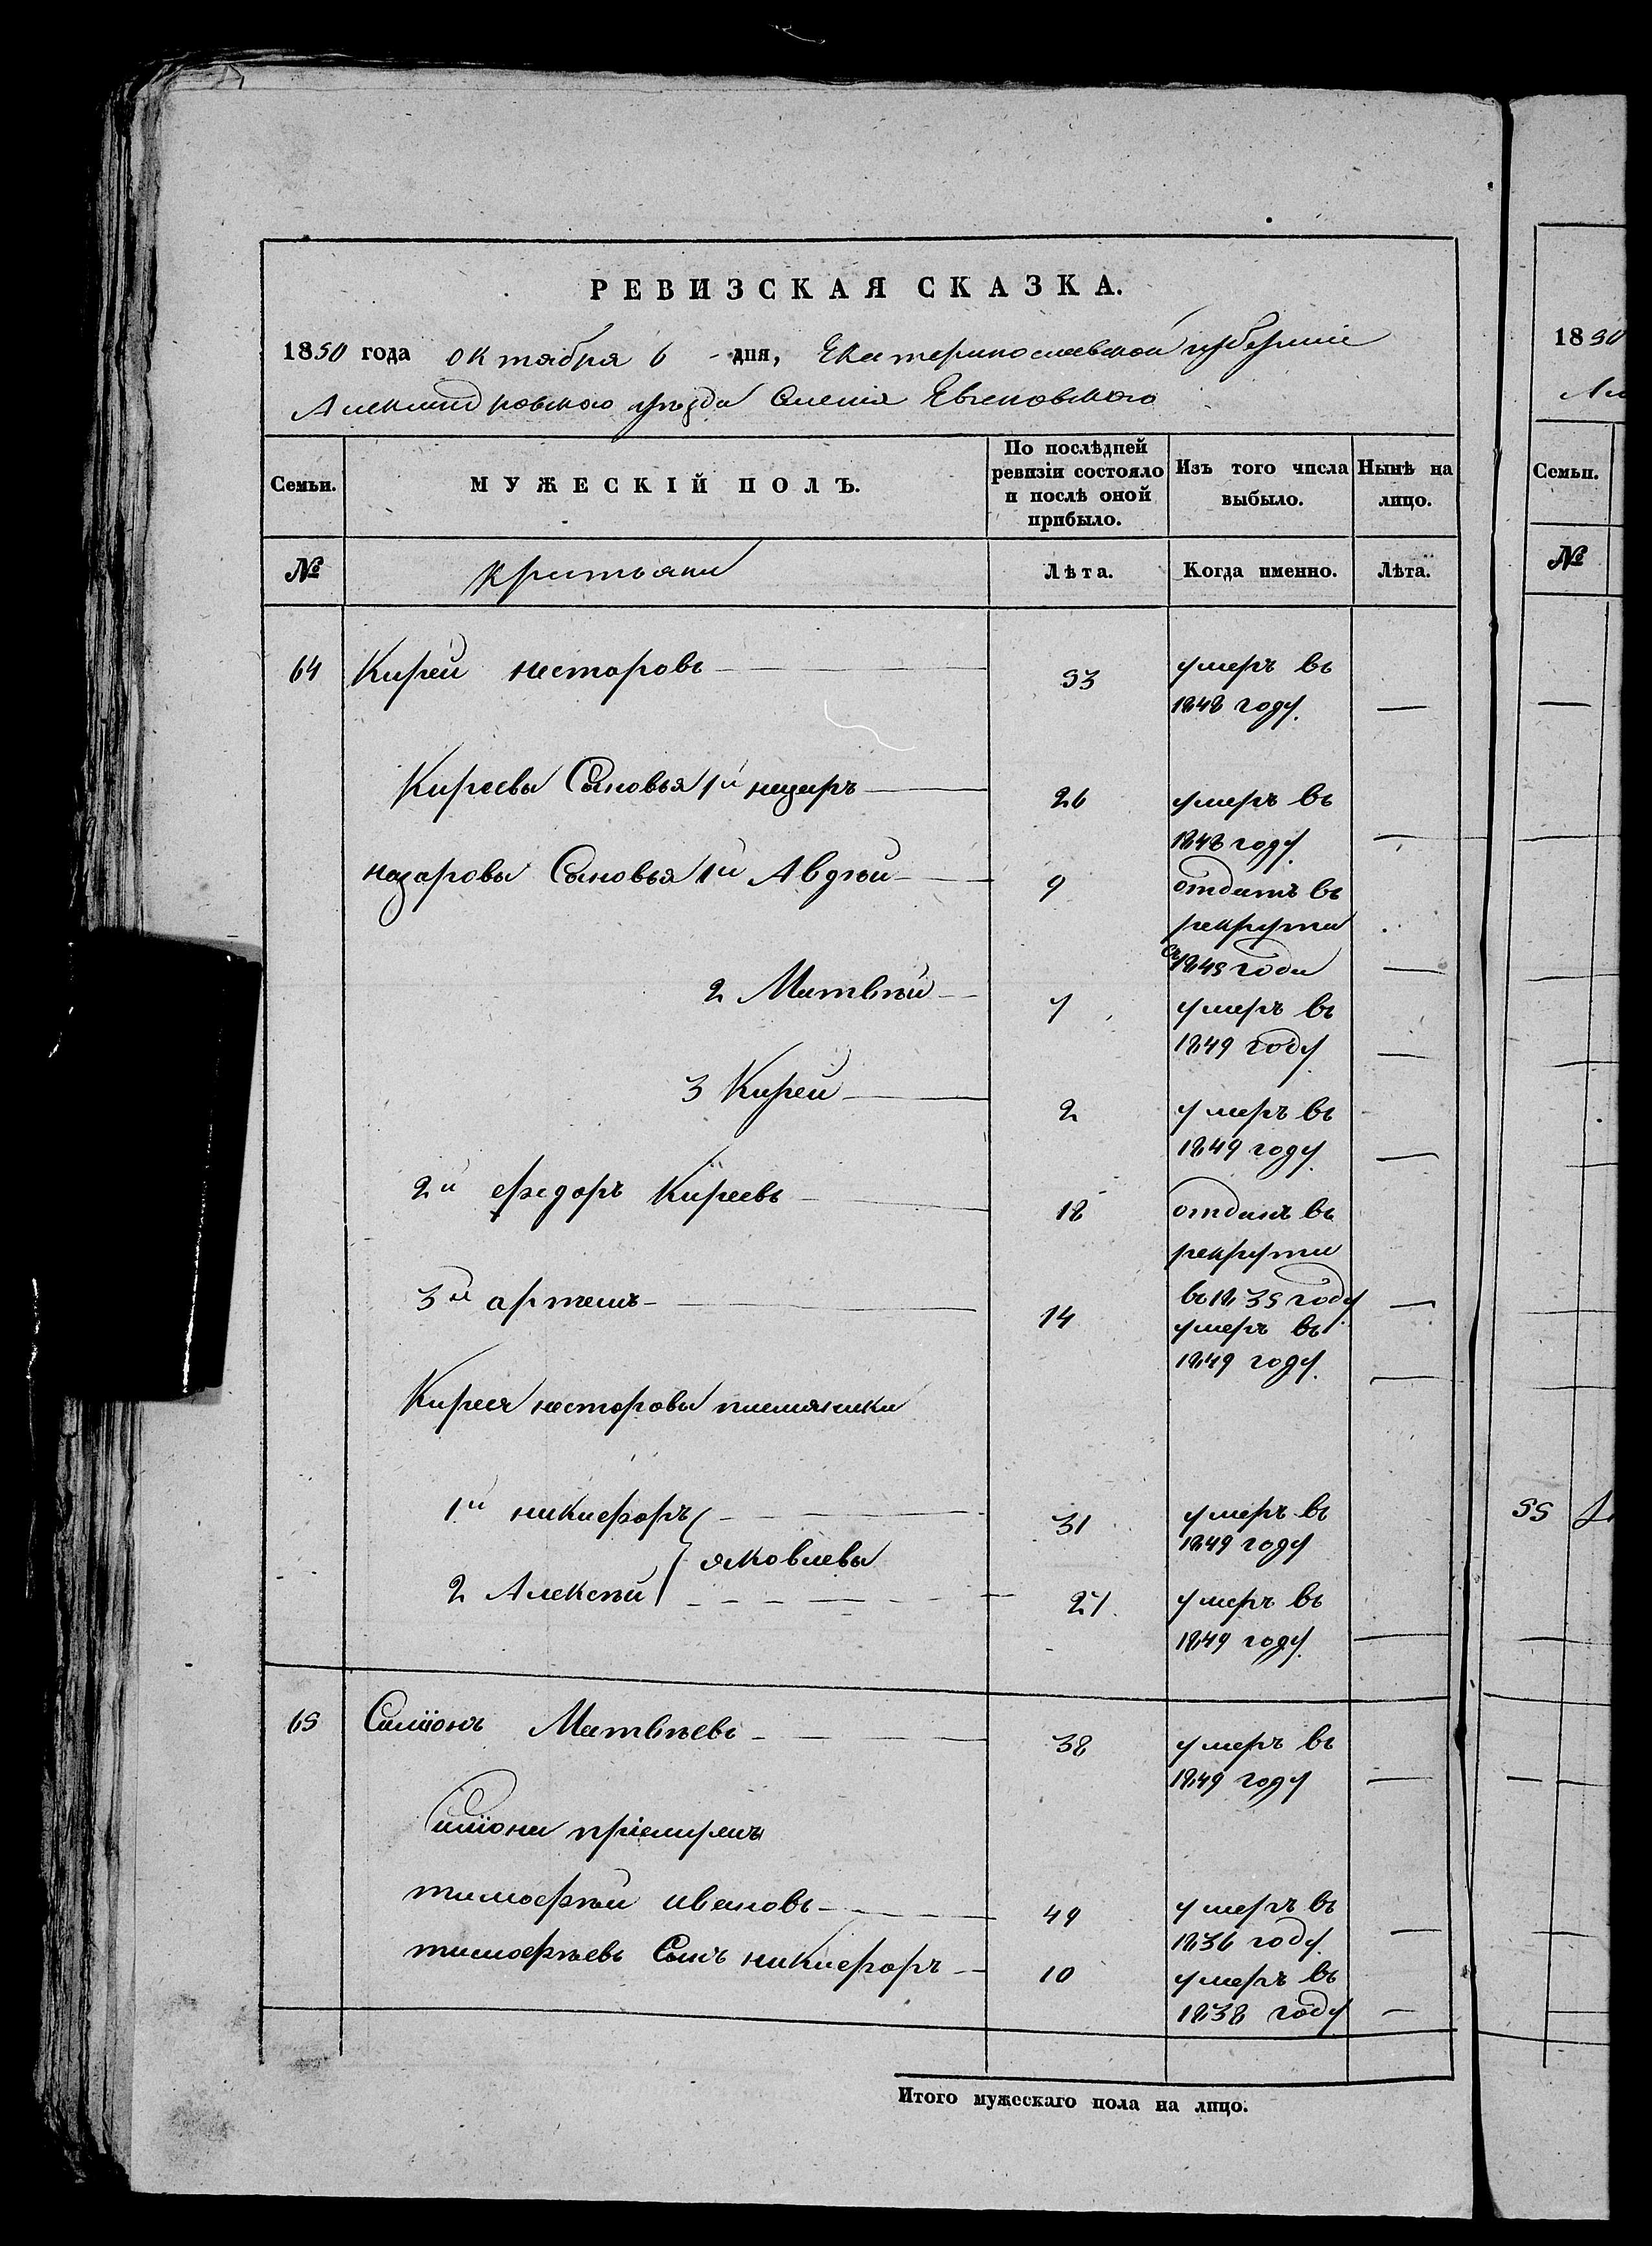 РЕВИЗСКАЯ СКАЗКА.
1850 года октября 6 - дня, Екатеринославской губерніи
Александровского уѣзда Селенія
Семьи. МУЖЕСКІЙ ПОЛЪ. По послѣдней ревизіи состояло и послѣ оной прибыло. Изъ того числа выбыло. Нынѣ на лицо.
№ Лѣта. Когда именно. Лѣта.
64 Кирей несторовъ 53 умеръ въ
1848 году.
Киреевы Сыновья 1й назаръ 26 умеръ въ
1848 году.
назаровы Сыновья 1й Авдѣй 9 отданъ въ
рекруты
1845 года
2 Матвѣй 7 умеръ въ
1849 году
3 Кирей 2 умеръ въ
1849 году.
2й федоръ Киреевъ 18 отданъ въ
рекруты
въ 1835 году
3й артемъ 14 умеръ въ
1849 году.
Кирея несторова племяники
1й никифоръ 31 умеръ въ
1849 году
яковлевы
2 Алексѣй 27. умеръ въ
1849 году.
65 Симіонъ Матвѣевъ 38 умеръ въ
1849 году
Симіона пріемышъ
тимофѣй ивановъ 49 умеръ въ
1836 году.
тимофѣевъ Сынъ никифоръ 10 умеръ въ
1838 году
Итого мужескаго пола на лицо.
1850
Семьи.
№
55